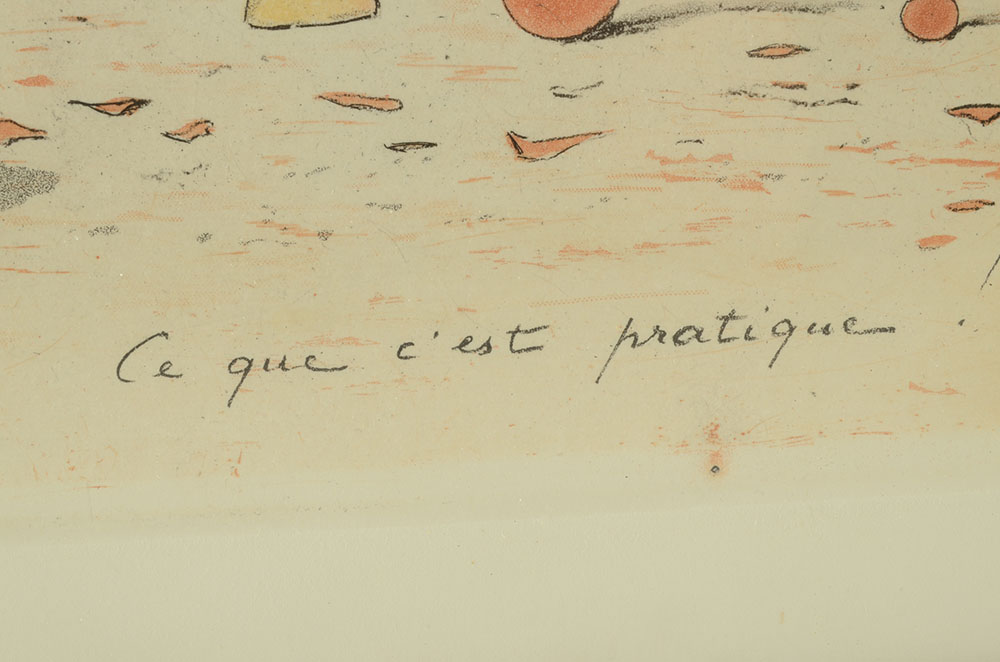 Ce que c'est pratique .